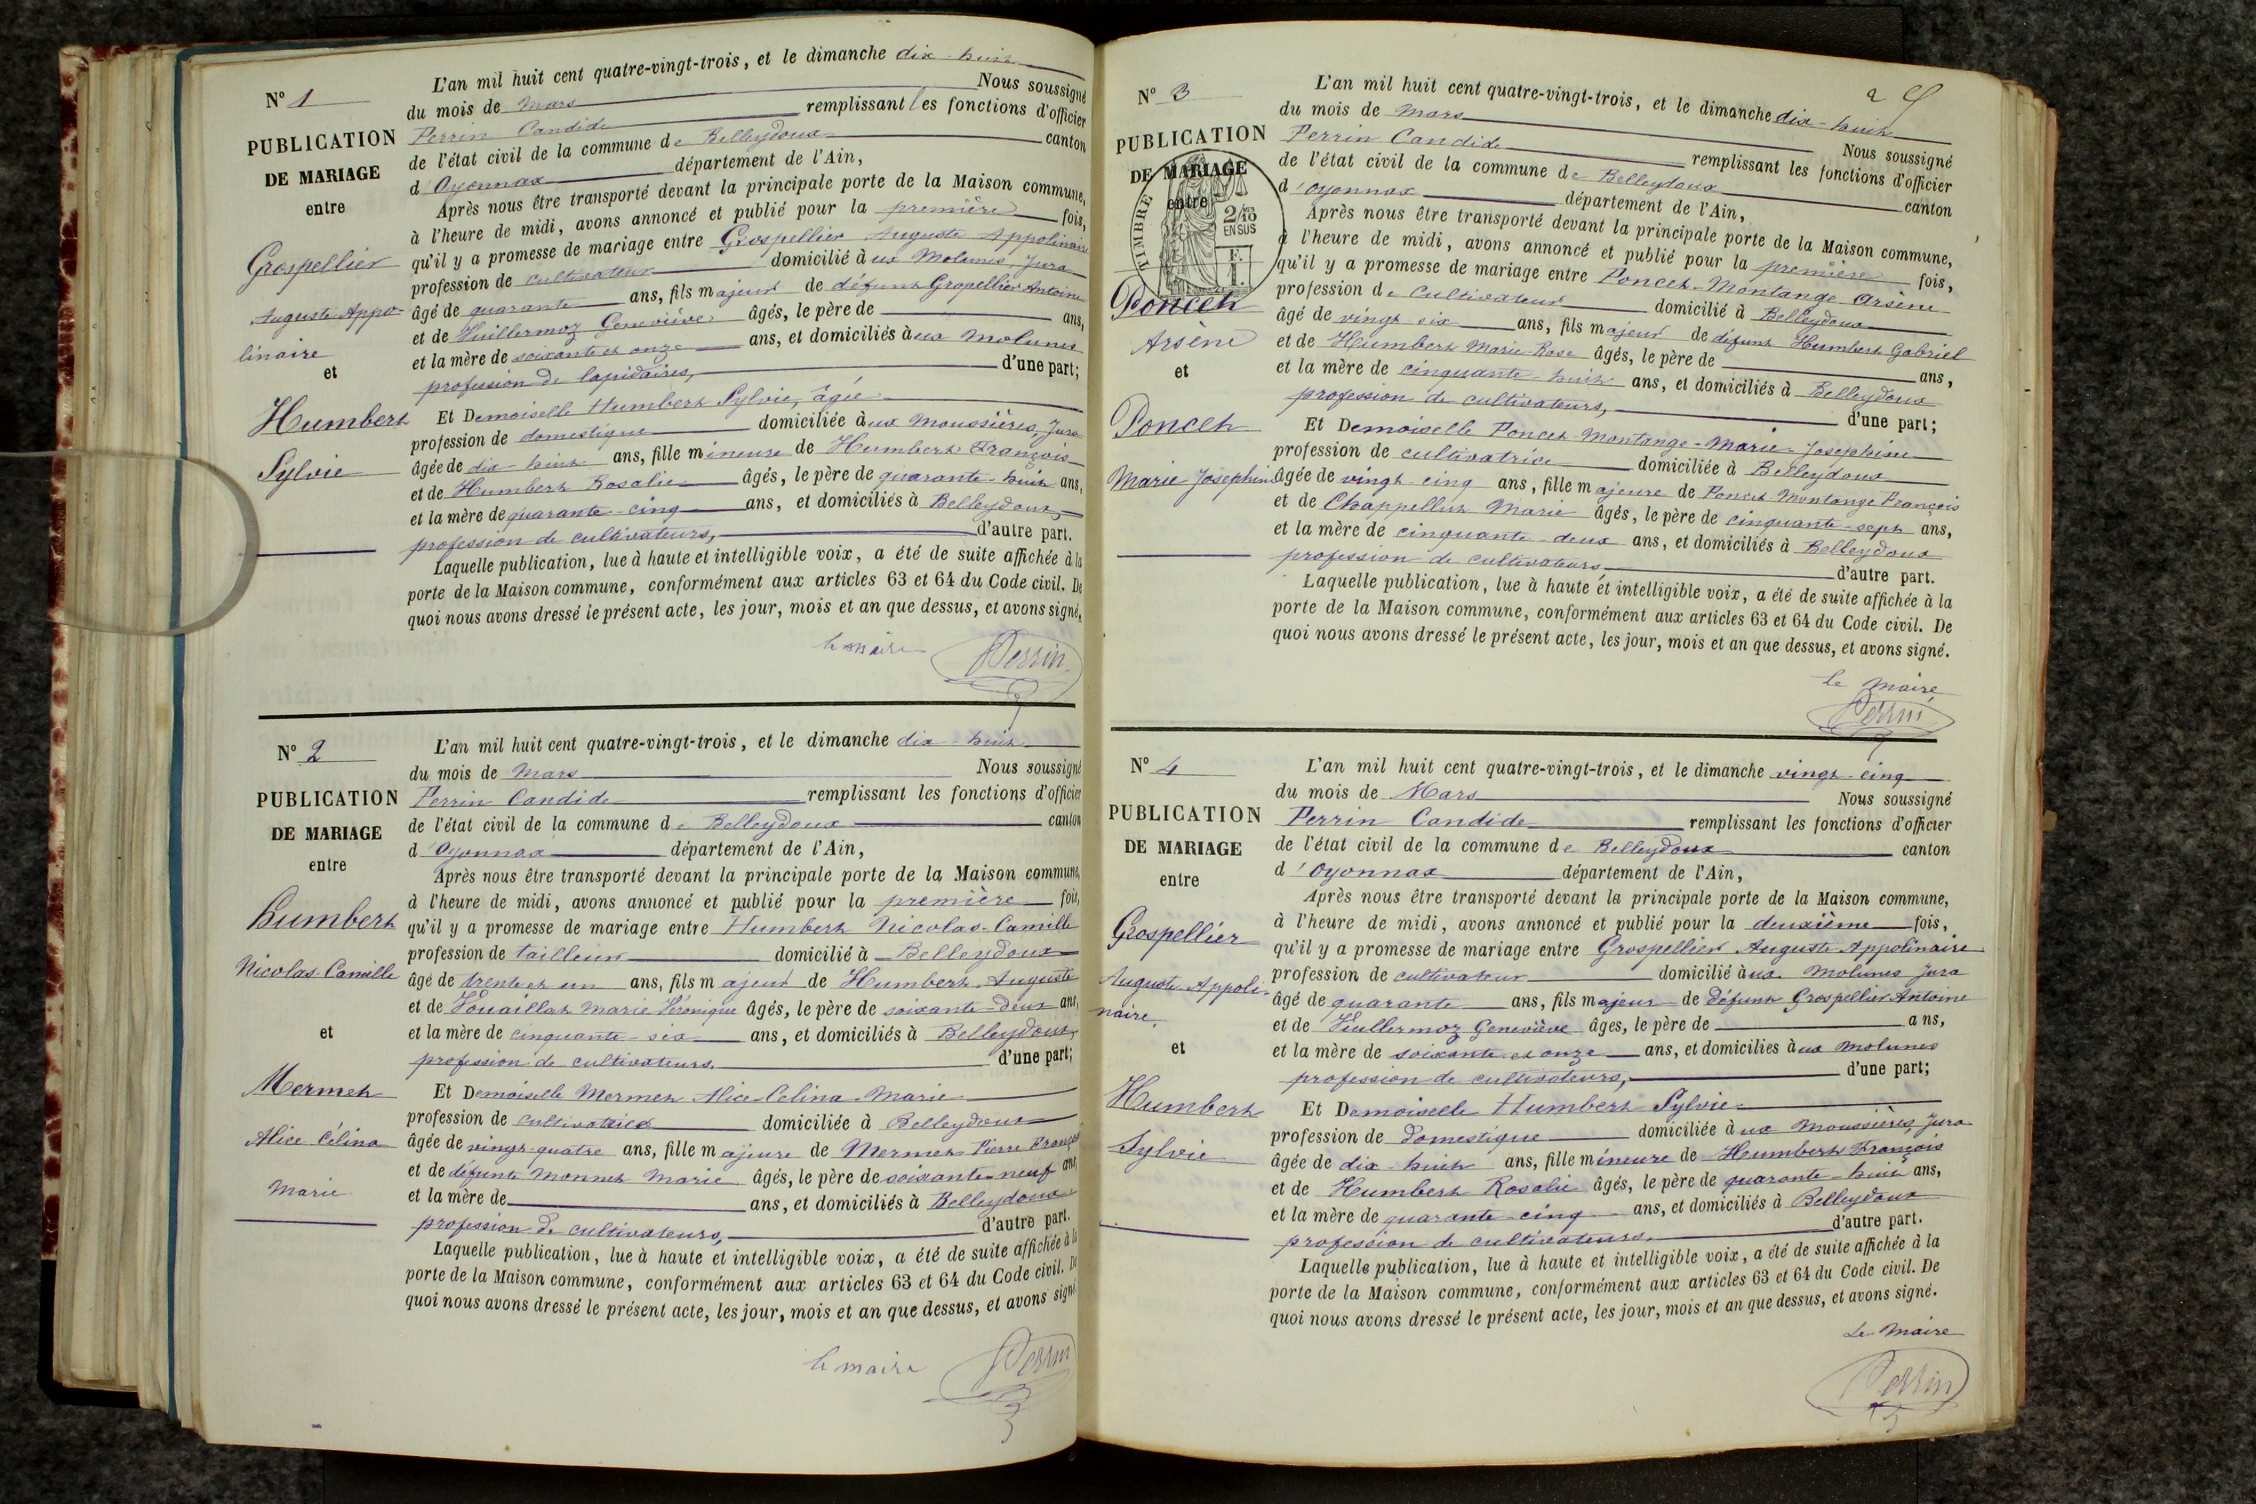 N° 1
PUBLICATION
DE MARIAGE
entre
Grospellier
Auguste Appo-
linaire
et
Humbert
Sylvie
L'an mil huit cent quatre-vingt-trois, et le dimanche dix-huit
du mois de Mars Nous soussigné
Perrin Candide remplissant les fonctions d'officier
de l'état civil de la commune de Belleydoux canton
d'Oyonnax département de l'Ain,
Après nous être transporté devant la principale porte de la Maison commune,
à l'heure de midi, avons annoncé et publié pour la première fois,
qu'il y a promesse de mariage entre Grospellier Auguste Appolinaire
profession de cultivateur domicilié aux Molunes Jura
âgé de quarante ans, fils majeur de défunt Grospellier Antoine
et de Vuillermoz Geneviève âgés, le père de ans,
et la mère de soixante et onze ans, et domiciliés aux Molunes
profession de lapidaires, d'une part;
Et Demoiselle Humbert Sylvie, âgée
profession de domestique domiciliée aux Moussières, Jura
âgée de dix-huit ans, fille mineure de Humbert François
et de Humbert Rosalie âgés, le père de quarante-huit ans,
et la mère de quarante-cinq ans, et domiciliés à Belleydoux,
profession de cultivateurs, d'autre part.
Laquelle publication, lue à haute et intelligible voix, a été de suite affichée à la
porte de la Maison commune, conformément aux articles 63 et 64 du Code civil. De
quoi nous avons dressé le présent acte, les jour, mois et an que dessus, et avons signé.
le maire Perrin
N° 2
PUBLICATION
DE MARIAGE
entre
Humbert
Nicolas Camille
et
Mermet
Alice Célina
Marie
L'an mil huit cent quatre-vingt-trois, et le dimanche dix-huit
du mois de Mars Nous soussigné
Perrin Candide remplissant les fonctions d'officier
de l'état civil de la commune de Belleydoux canton
d'Oyonnax département de l'Ain,
Après nous être transporté devant la principale porte de la Maison commune,
à l'heure de midi, avons annoncé et publié pour la première fois,
qu'il y a promesse de mariage entre Humbert Nicolas-Camille
profession de tailleur domicilié à Belleydoux
âgé de trente et un ans, fils majeur de Humbert Auguste
et de Vouaillat Marie Véronique âgés, le père de soixante-deux ans,
et la mère de cinquante-six ans, et domiciliés à Belleydoux,
profession de cultivateurs, d'une part;
Et Demoiselle Mermet Alice-Célina-Marie
profession de cultivatrice domiciliée à Belleydoux
âgée de vingt-quatre ans, fille majeure de Mermet Pierre François
et de défunte Monnet Marie âgés, le père de soixante-neuf ans,
et la mère de ans, et domiciliés à Belleydoux
profession de cultivateurs, d'autre part.
Laquelle publication, lue à haute et intelligible voix, a été de suite affichée à la
porte de la Maison commune, conformément aux articles 63 et 64 du Code civil. De
quoi nous avons dressé le présent acte, les jour, mois et an que dessus, et avons signé
le maire Perrin
2
N° 3
PUBLICATION
DE MARIAGE
entre
TIMBRE
2/10
EN SUS
Poncet
Arsène
et
Poncet
Marie Josephine
L'an mil huit cent quatre-vingt-trois, et le dimanche dix-huit
du mois de Mars Nous soussigné
Perrin Candide remplissant les fonctions d'officier
de l'état civil de la commune de Belleydoux canton
d'Oyonnax département de l'Ain,
Après nous être transporté devant la principale porte de la Maison commune,
à l'heure de midi, avons annoncé et publié pour la première fois,
qu'il y a promesse de mariage entre Poncet-Montange Arsène
profession de cultivateur domicilié à Belleydoux
âgé de vingt six ans, fils majeur de défunt Humbert Gabriel
et de Humbert Marie-Rose âgés, le père de ans,
et la mère de cinquante-huit ans, et domiciliés à Belleydoux
profession de cultivateurs, d'une part;
Et Demoiselle Poncet-Montange-Marie-Josephine
profession de cultivatrice domiciliée à Belleydoux
âgée de vingt-cinq ans, fille majeure de Poncet Montange François
et de Chappelluz Marie âgés, le père de cinquante-sept ans,
et la mère de cinquante-deux ans, et domiciliés à Belleydoux
profession de cultivateurs d'autre part.
Laquelle publication, lue à haute et intelligible voix, a été de suite affichée à la
porte de la Maison commune, conformément aux articles 63 et 64 du Code civil. De
quoi nous avons dressé le présent acte, les jour, mois et an que dessus, et avons signé.
le maire
Perrin
N° 4
PUBLICATION
DE MARIAGE
entre
Grospellier
Auguste Appoli-
naire
et
Humbert
Sylvie
L'an mil huit cent quatre-vingt-trois, et le dimanche vingt-cinq
du mois de Mars Nous soussigné
Perrin Candide remplissant les fonctions d'officier
de l'état civil de la commune de Belleydoux canton
d'Oyonnax département de l'Ain,
Après nous être transporté devant la principale porte de la Maison commune,
à l'heure de midi, avons annoncé et publié pour la deuxième fois,
qu'il y a promesse de mariage entre Grospellier Auguste-Appolinaire
profession de cultivateur domicilié aux Molunes Jura
âgé de quarante ans, fils majeur de défunt Grospellier Antoine
et de Vuillermoz Geneviève âges, le père de ans,
et la mère de soixante et onze ans, et domicilies aux Molunes
profession de cultivateurs, d'une part;
Et Demoiselle Humbert Sylvie
profession de domestique domiciliée aux Moussières, Jura
âgée de dix-huit ans, fille mineure de Humbert François
et de Humbert Rosalie âgés, le père de quarante-huit ans,
et la mère de quarante-cinq ans, et domiciliés à Belleydoux
profession de cultivateurs, d'autre part.
Laquelle publication, lue à haute et intelligible voix, a été de suite affichée à la
porte de la Maison commune, conformément aux articles 63 et 64 du Code civil. De
quoi nous avons dressé le présent acte, les jour, mois et an que dessus, et avons signé.
Le Maire
Perrin